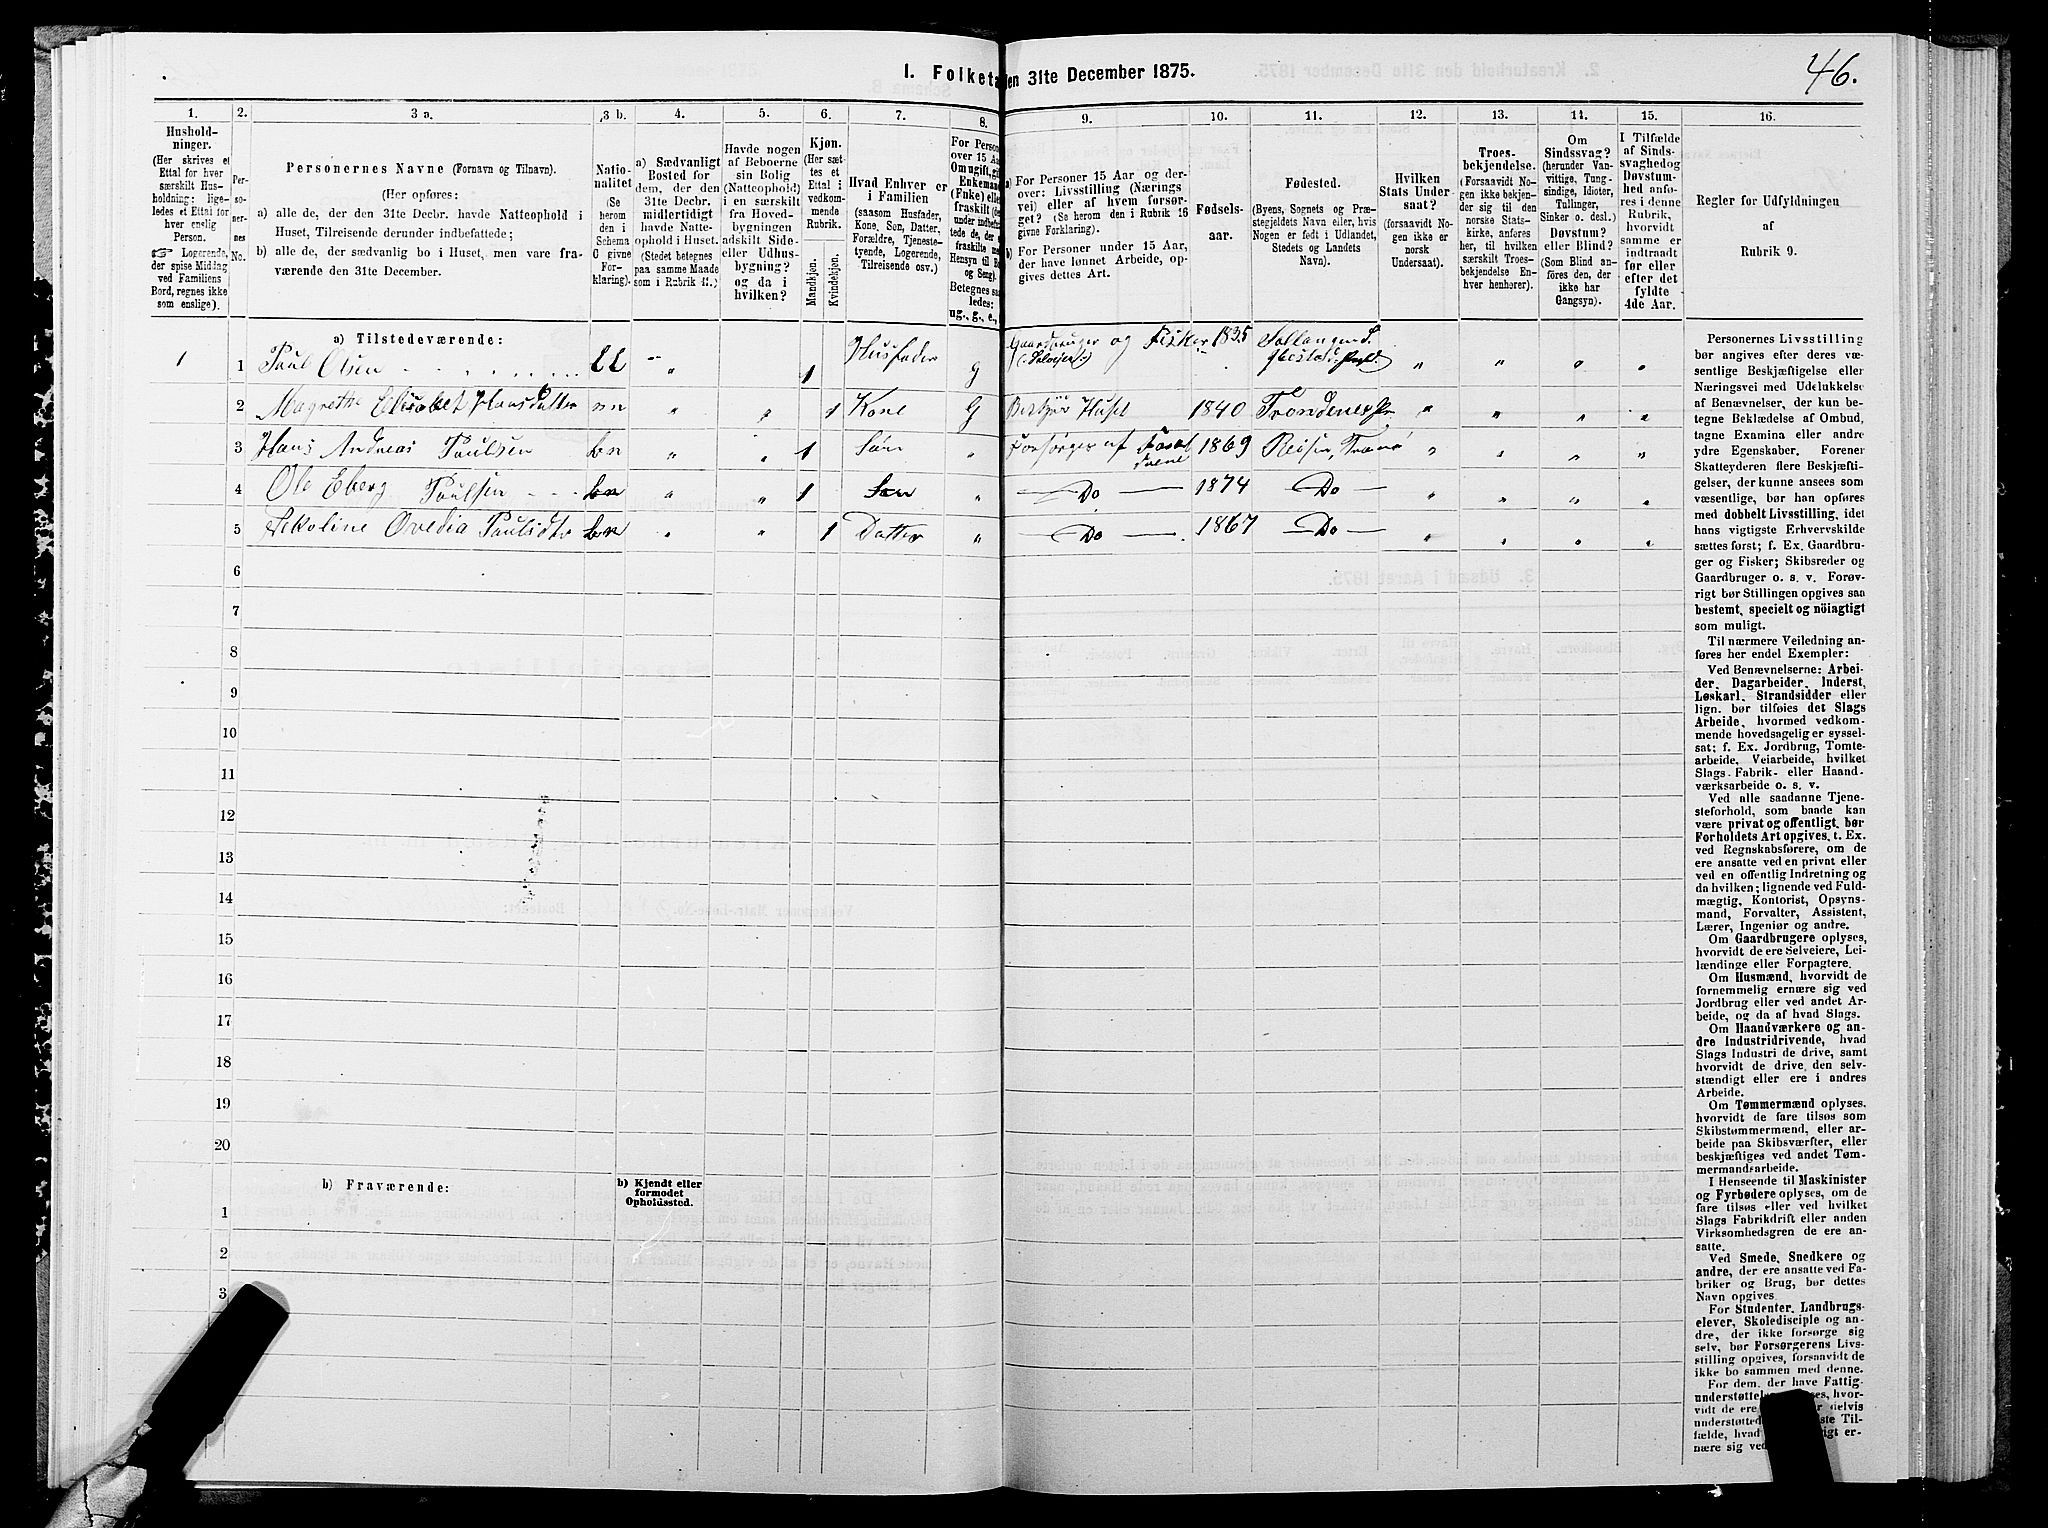 46.
I. Folketa
en 31te December 1875.
1.
Hushold-
ninger.
(Her skrives et
Ettal for hver
særskilt Hus-
holdning; lige-
ledes et Ettal for
hver enslig
Person.
Logerende,
der spise Middag
ved Familiens
Bord, regnes ikke
som enslige).
2.
Per-
so-
ner-
nes
No.
3 a.
Personernes Navne (Fornavn og Tilnavn).
(Her opføres:
a) alle de, der den 31te Decbr. havde Natteophold i
Huset, Tilreisende derunder indbefattede;
b) alle de, der sædvanlig bo i Huset, men vare fra-
værende den 31te December.
3 b.
Natio-
nalitet
(Se
herom
den i
Schema
C givne
For-
klaring).
4.
a) Sædvanligt
Bosted for
dem, der den
31te Decbr.
midlertidigt
havde Natte-
ophold i Huset.
(Stedet betegnes
paa samme Maade
som i Rubrik 11.)
5.
Havde nogen
af Beboerne
sin Bolig
(Natteophold)
i en særskilt
fra Hoved-
bygningen
adskilt Side-
eller Udhus-
bygning?
og da i
hvilken?
6.
Kjøn.
(Her sæt-
tes et
Ettal i
vedkom-
mende
Rubrik.
Mandkjøn.
Kvindekjøn.
7.
Hvad Enhver er
i Familien
(saasom Husfader,
Kone, Søn, Datter,
Forældre, Tjeneste-
tyende, Logerende,
Tilreisende osv.)
8.
For Person
over 15 Aa
Om ugift, gif
Enkemand
(Fuke) elle
fraskilt (de
under indbefat-
tede de, der e
fraskilte me
Hensyn til Bo
og Seng).
Betegnes saa
ledes:
ug., g., e.,
9.
a) For Personer 15 Aar og der-
over: Livsstilling (Nærings
vei) eller af hvem forsør-
get? (Se herom den i Rubrik 16
givne Forklaring).
b) For Personer under 15 Aar,
der have lønnet Arbeide, op-
gives dettes Art.
10.
Fødsels-
aar.
11.
Fødested.
(Byens, Sognets og Præ-
stegjeldets Navn eller, hvis
Nogen er født i Udlandet,
Stedets og Landets
Navn).
12.
Hvilken
Stats Under
saat?
(forsaavidt No-
gen ikke er
norsk
Undersaat).
13.
Troes-
bekjendelse.
(Forsaavidt No-
gen ikke bekjen-
der sig til den
norske Stats-
kirke, anføres
her, til hvilken
særskilt Troes-
bekjendelse En-
hver henhører).
14.
Om
Sindssvag?
(herunder Van-
vittige, Tung-
sindige, Idioter,
Tullinger,
Sinker o. desl.)
Døvstum?
eller Blind?
(Som Blind an-
føres den, der
ikke har
Gangsyn).
15.
I Tilfælde
af Sinds-
svaghedog
Døvstum-
hed anfø-
res i denne
Rubrik,
hvorvidt
samme er
indtraadt
før eller
efter det
fyldte
4de Aar.
16.
Regler for Udfyldningen
af
Rubrik 9.
a) Tilstedeværende:
1 1 Paul Olsen LL " 1 Husfader g Gaardbruger og Fisker 1835
(: Selveier :)
2 Magrethe Elisabet Hansdatter nn " " 1 Kone G Bestyr Huset 1840 Trondenes " " " "
3 Hans Andreas Paulsen bn " " 1 Søn " Forsørges af 1869 Reisen, Tranø " " " "
4 Ole Eberg Paulsen bn " " 1 Søn " Do 1874 Do " " " "
5 Nekoline Ovedia Paulsdtr bn " " 1 Datter " Do 1867 Do " " " "
6
7
8
9
10
11
12
13
14
15
16
17
18
19
20
b) Fraværende:
b) Kjendt eller
formodet
Opholdssted.
1
2
3
Personernes Livsstilling
bør angives efter deres væ-
sentlige Beskjæftigelse eller
Næringsvei med Udelukkelse
af Benævnelser, der kun be-
tegne Beklædelse af Ombud,
tagne Examina eller andre
ydre Egenskaber. Forener
Skatteyderen flere Beskjæfti-
gelser, der kunne ansees som
væsentlige, bør han opføres
med dobbelt Livsstilling, idet
hans vigtigste Erhvervskilde
sættes først; f. Ex. Gaardbru-
ger og Fisker; Skibsreder og
Gaardbruger o. s. v. Forøv-
rigt bør Stillingen opgives saa
bestemt, specielt og nöiagtigt
som muligt.
Til nærmere Veiledning an-
føres her endel Exempler:
Ved Benævnelserne: Arbei-
der, Dagarbeider, Inderst,
Løskarl, Strandsidder eller
lign. bør tilføies det Slags
Arbeide, hvormed vedkom-
mende hovedsagelig er syssel-
sat; f. Ex. Jordbrug, Tomte-
arbeide, Veiarbeide, hvilket
Slags Fabrik- eller Haand-
værksarbeide o. s. v.
Ved alle saadanne Tjene-
steforhold, som baade kan
være privat og offentligt, bør
Forholdets Art opgives, t. Ex.
ved Regnskabsførere, om de
ere ansatte ved en privat eller
ved en offentlig Indretning og
da hvilken; lignende ved Fuld-
mægtig, Kontorist, Opsyns-
mand, Forvalter, Assistent,
Lærer, Ingeniør og andre.
Om Gaardbrugere oplyses,
hvorvidt de ere Selveiere, Lei-
lændinge eller Forpagtere.
Om Husmænd, hvorvidt de
fornemmelig ernære sig ved
Jordbrug eller ved andet Ar-
beide, og da af hvad Slags.
Om Haandværkere og an-
dre Industridrivende, hvad
Slags Industri de drive, samt
hvorvidt de drive den selv-
stændigt eller ere i andres
Arbeide.
Om Tømmermænd oplyses,
hvorvidt de fare tilsøs som
Skibstømmermænd, eller ar-
beide paa Skibsværfter, eller
beskjæftiges ved andet Tøm-
mermandsarbeide.
I Henseende til Maskinister
og Fyrbødere oplyses, om de
fare tilsøs eller ved hvilket
Slags Fabrikdrift eller anden
Virksomhedsgren de ere an-
satte.
Ved Smede, Snedkere og
andre, der ere ansatte ved Fa-
briker og Brug, bør dettes
Navn opgives.
For Studenter, Landbrugs-
elever, Skoledisciple og an-
dre, der ikke forsørge sig
selv, bør Forsørgerens Livs-
stilling opgives, forsaavidt de
ikke bo sammen med denne.
For dem, der have Fattig-